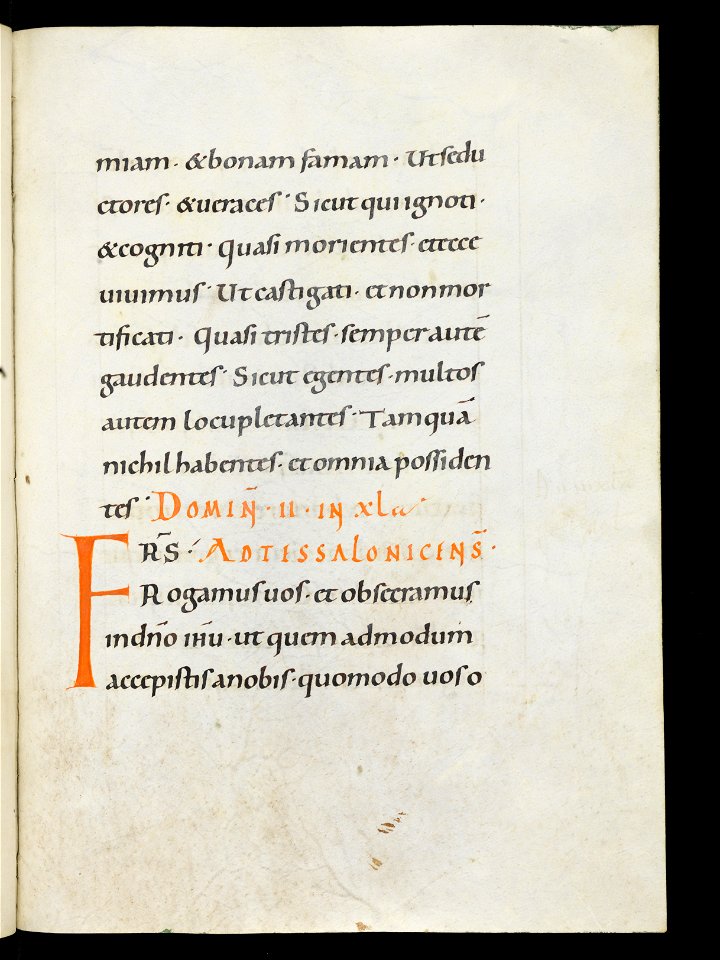 miam · &bonam famam · Ut sedu
ctores · &ueraces · Sicut qui ignoti ·
&cogniti · quasi morientes · et ecce
uiuimus · Ut castigati · et non mor
tificati · Quasi tristes · semper autē
gaudentes · Sicut egentes · multos
autem locupletantes · Tamquā
nichil habentes · et omnia possiden
tes · DOMIN̄ · II · IN XLa ·
FRS̄ · AD TISSALONICENS̄ ·
Rogamus uos · et obsecramus
in dn̄o ihū · ut quem admodum
accepistis a nobis · quomodo uos o